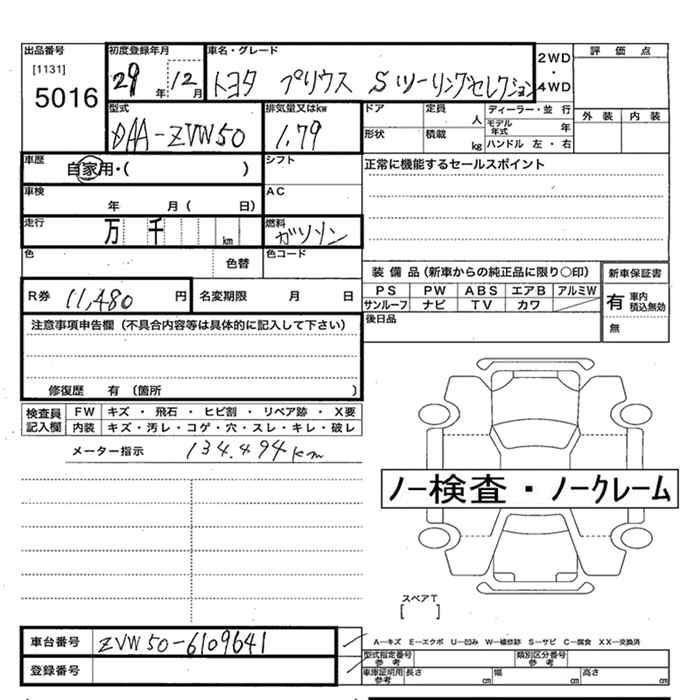 出品番号 初度登録年月 車名・グレード 評価点
[1131] 5016 29年 12月 トヨタ プリウス Sツーリングセレクション 2WD・4WD
型式 排気量又はkw ドア 定員 人 ディーラー・並 行 外装 内装
DAA-ZVW50 1.79 形状 積載 kg モデル年式 年 ハンドル 左・右
車歴 自家用・( ) シフト 正常に機能するセールスポイント
車検 年 月( 日) AC
走行 万 千 km 燃料 ガソリン
色 色替 色コード 装備品(新車からの純正品に限り○印) 新車保証書
R券 11,480 円 名変期限 月 日 PS PW ABS エアB アルミW 有 車内 積込無効
サンルーフ ナビ TV カワ
注意事項申告欄(不具合内容等は具体的に記入して下さい) 後日品 無
修復歴 有 (箇所 )
検査員記入欄 FW キズ・飛石・ヒビ割・リペア跡・X要
内装 キズ・汚レ・コゲ・穴・スレ・キレ・破レ
メーター指示 134,494km
ノー検査・ノークレーム
スペアT
[ ]
車台番号 ZVW50-6109641 A-キズ E-エクボ U-凹み W-補修跡 S-サビ C-腐食 XX-交換済
登録番号 型式指定番号 参考 類別区分番号 参考
車庫証明用 参考 長さ cm 幅 cm 高さ cm